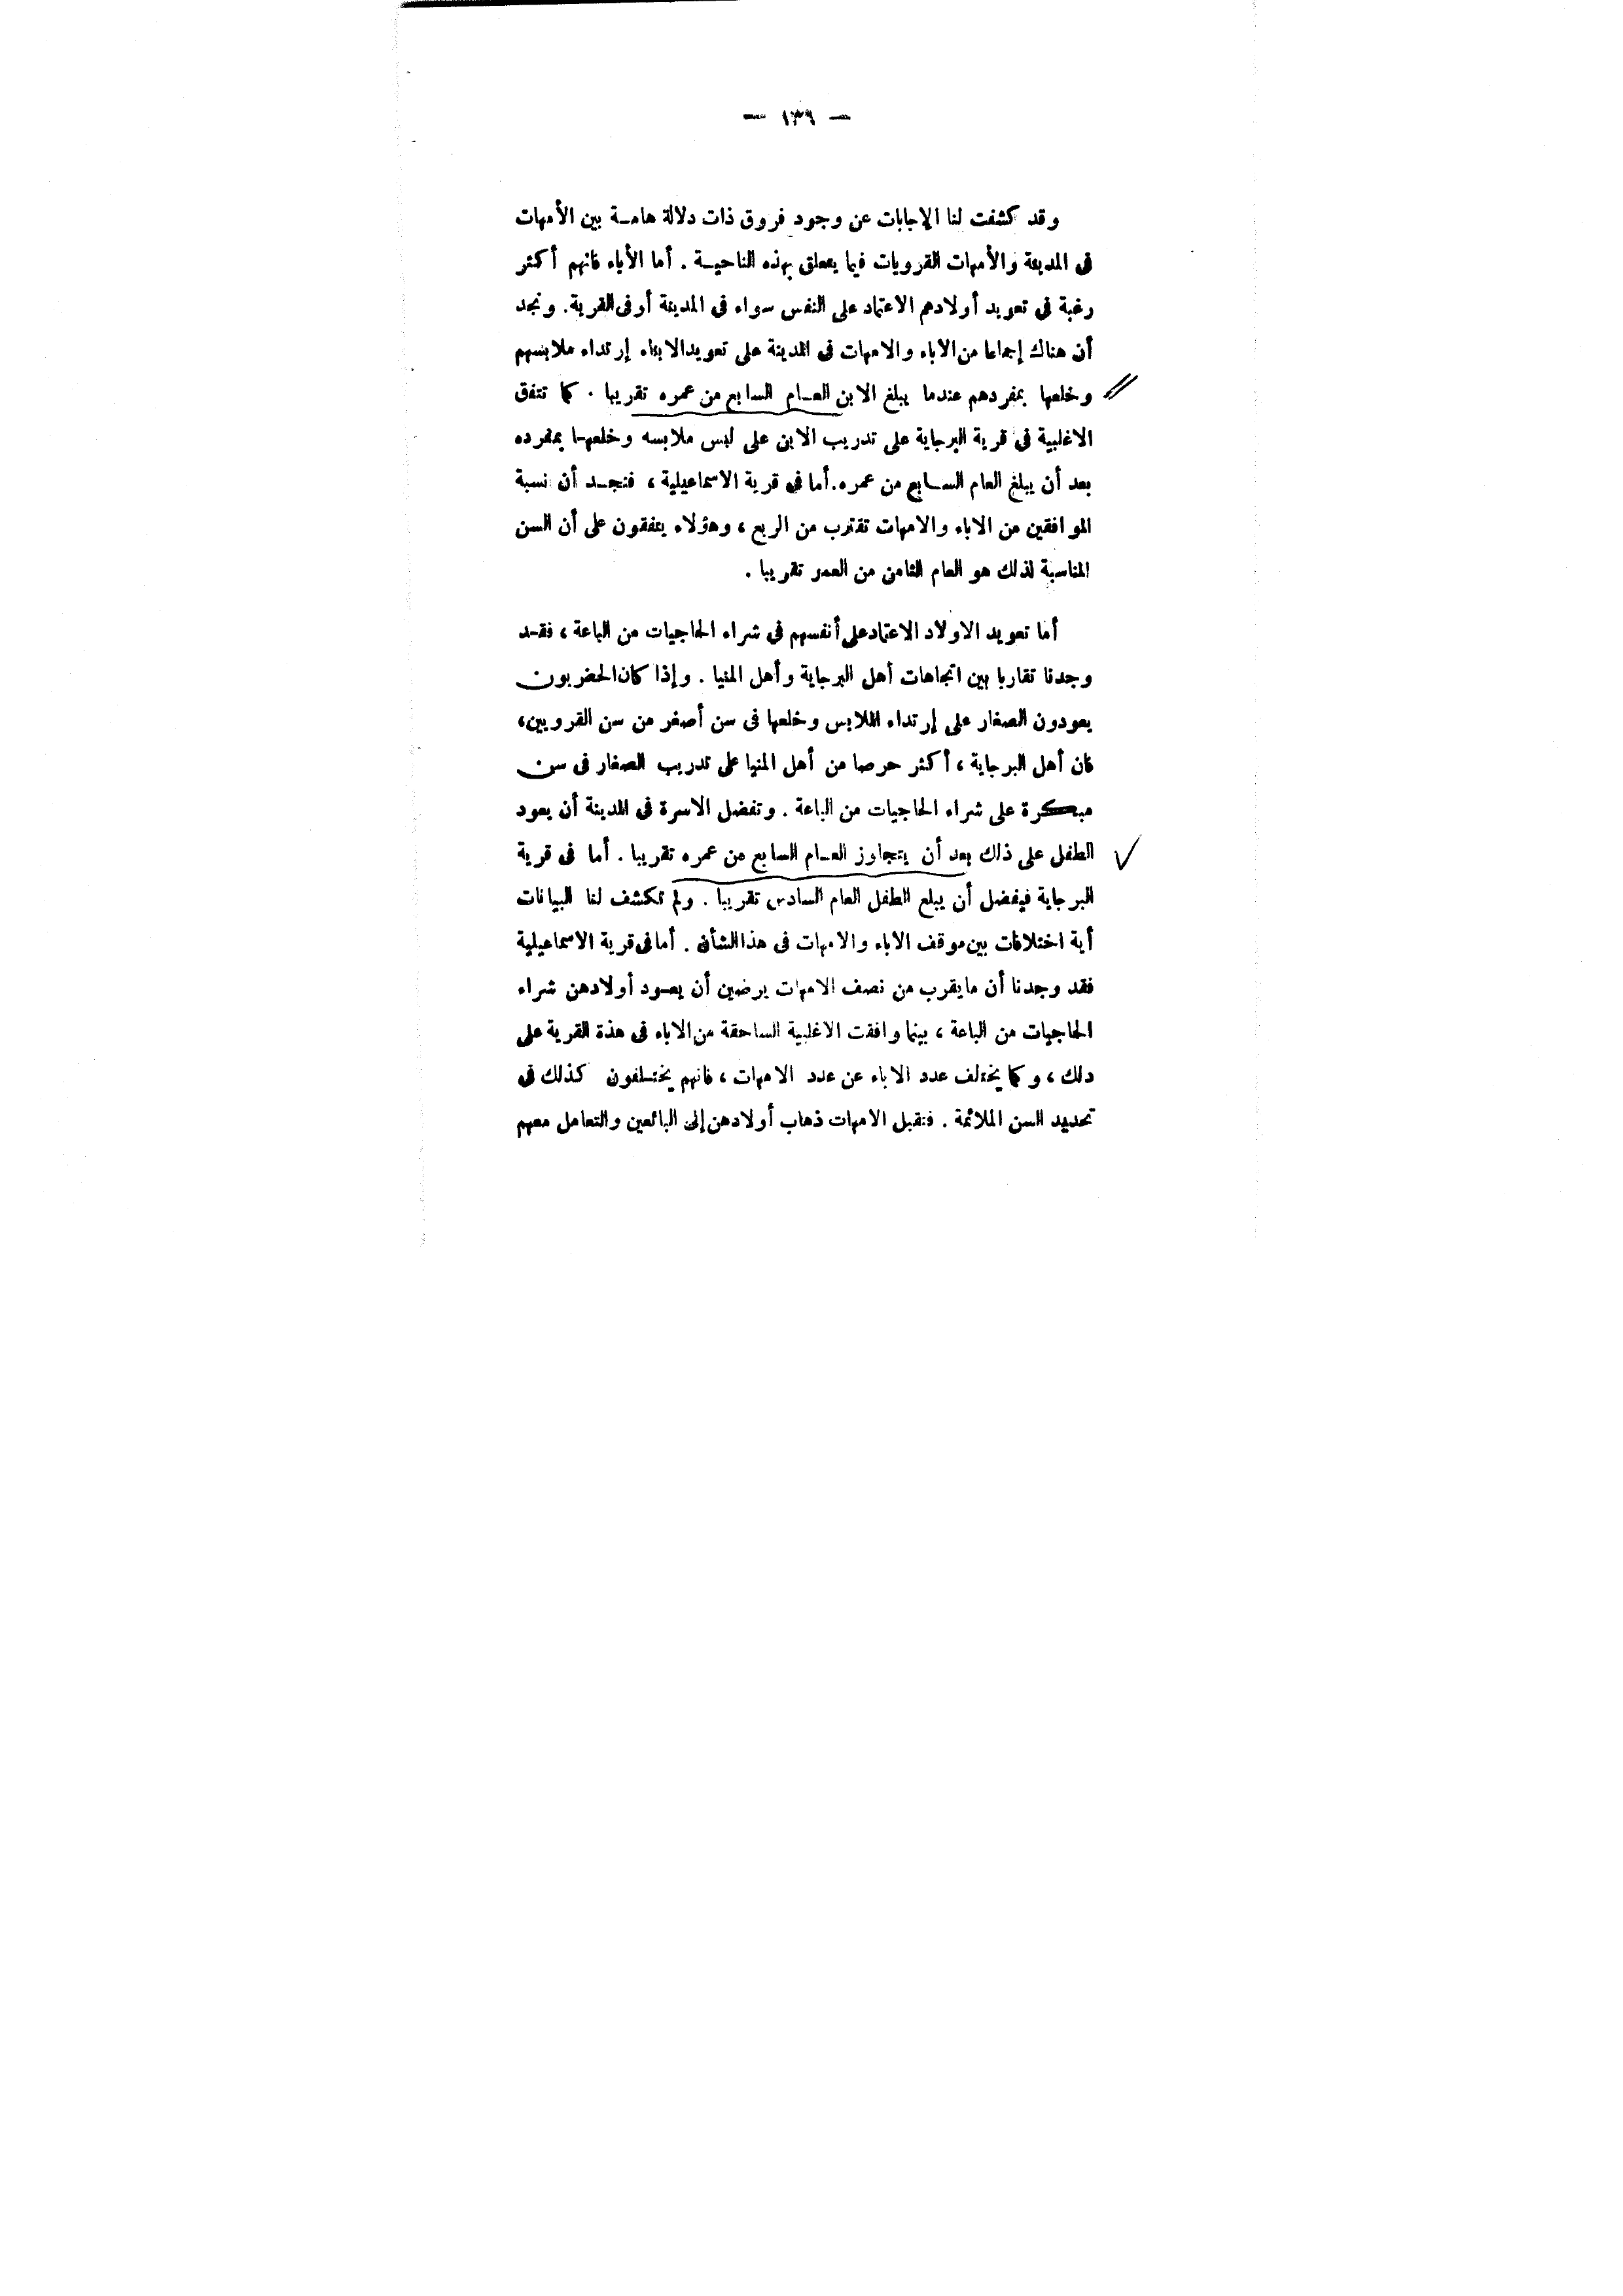 — ١٣٩ —
وقد كشفت لنا الإجابات عن وجود فروق ذات دلالة هامة بين الأمهات
فى المدينة والأمهات القرويات فيما يتعلق بهذه الناحية . أما الأباء فانهم أكثر
رغبة فى تعويد أولادهم الاعتماد على النفس سواء فى المدينة أو فى القرية . ونجد
أن هناك إجماعا من الاباء والامهات فى المدينة على تعويد الابناء إرتداء ملابسهم
وخلعها بمفردهم عندما يبلغ الابن العام السابع من عمره تقريبا . كما تتفق
الاغلبية فى قرية البرجاية على تدريب الابن على لبس ملابسه وخلعها بمفرده
بعد أن يبلغ العام السابع من عمره . أما فى قرية الاسماعيلية ، فنجد أن نسبة
الموافقين من الاباء والامهات تقترب من الربع ، وهؤلاء يتفقون على أن السن
المناسبة لذلك هو العام الثامن من العمر تقريبا .
أما تعويد الاولاد الاعتماد على أنفسهم فى شراء الحاجيات من الباعة ، فقد
وجدنا تقاربا بين اتجاهات أهل البرجاية وأهل المنيا . وإذا كان الحضريون
يعودون الصغار على إرتداء الملابس وخلعها فى سن أصغر من سن القرويين ،
فان أهل البرجاية ، أكثر حرصا من أهل المنيا على تدريب الصغار فى سن
مبكرة على شراء الحاجيات من الباعة . وتفضل الاسرة فى المدينة أن يعود
الطفل على ذلك بعد أن يتجاوز العام السابع من عمره تقريبا . أما فى قرية
البرجاية فيفضل أن يبلع الطفل العام السادس تقريبا . ولم تكشف لنا البيانات
أية اختلافات بين موقف الاباء والامهات فى هذا الشأن . أما فى قرية الاسماعيلية
فقد وجدنا أن ما يقرب من نصف الامهات يرضين أن يعود أولادهن شراء
الحاجيات من الباعة ، بينما وافقت الاغلبية الساحقة من الاباء فى هذة القرية على
دلك ، وكما يختلف عدد الاباء عن عدد الامهات ، فانهم يختلفون كذلك فى
تحديد السن الملائمة . فتقبل الامهات ذهاب أولادهن إلى البائعين والتعامل معهم